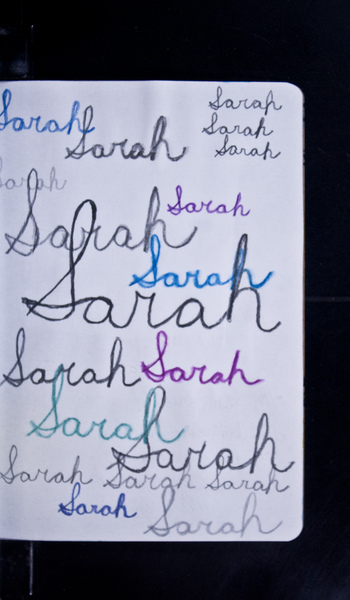 Sarah
Sarah
Sarah
Sarah
Sarah
Sarah
Sarah
Sarah
Sarah
Sarah
Sarah
Sarah
Sarah
Sarah
Sarah Sarah Sarah
Sarah
Sarah